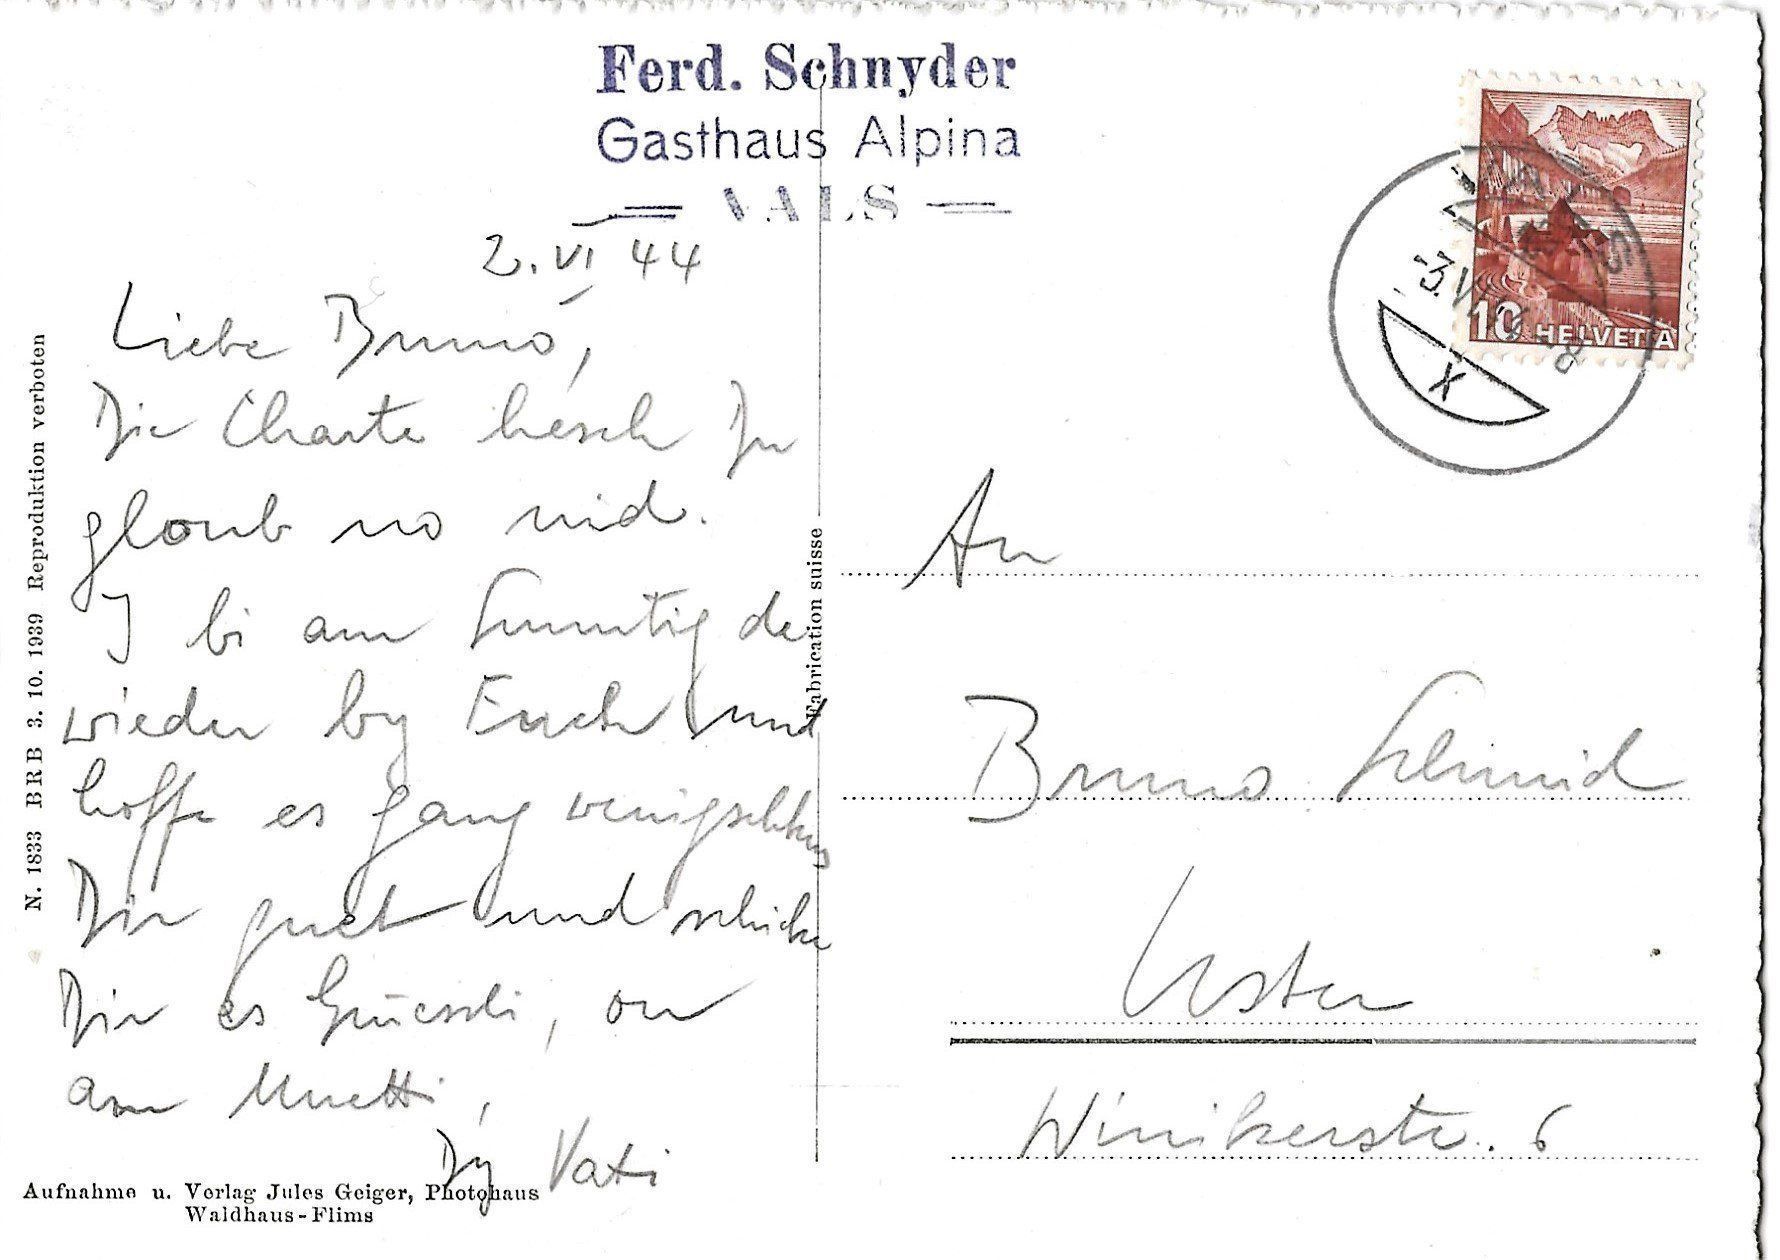 Ferd. Schnyder
Gasthaus Alpina
VALS
2. VI 44
Liebe Bruno,
Die Charte hesch Du
gloub no nid.
I bi am Sunntig de
wieder by Euch und
hoffe es gang wenigschtens
Dir guet und schicke
Dir es Grüessli, ou
am Muetti,
Dy Vati
N. 1833 BRB 3. 10. 1939 Reproduktion verboten
Aufnahme u. Verlag Jules Geiger, Photohaus
Waldhaus-Flims
Fabrication suisse
10 HELVETIA
VALS
X
An
Bruno Schmid
Uster
Winikerstr. 6